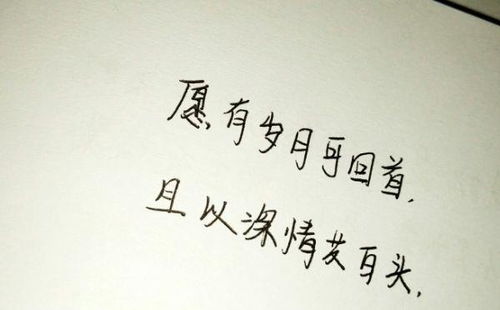 愿有岁月可回首,
且以深情共白头.